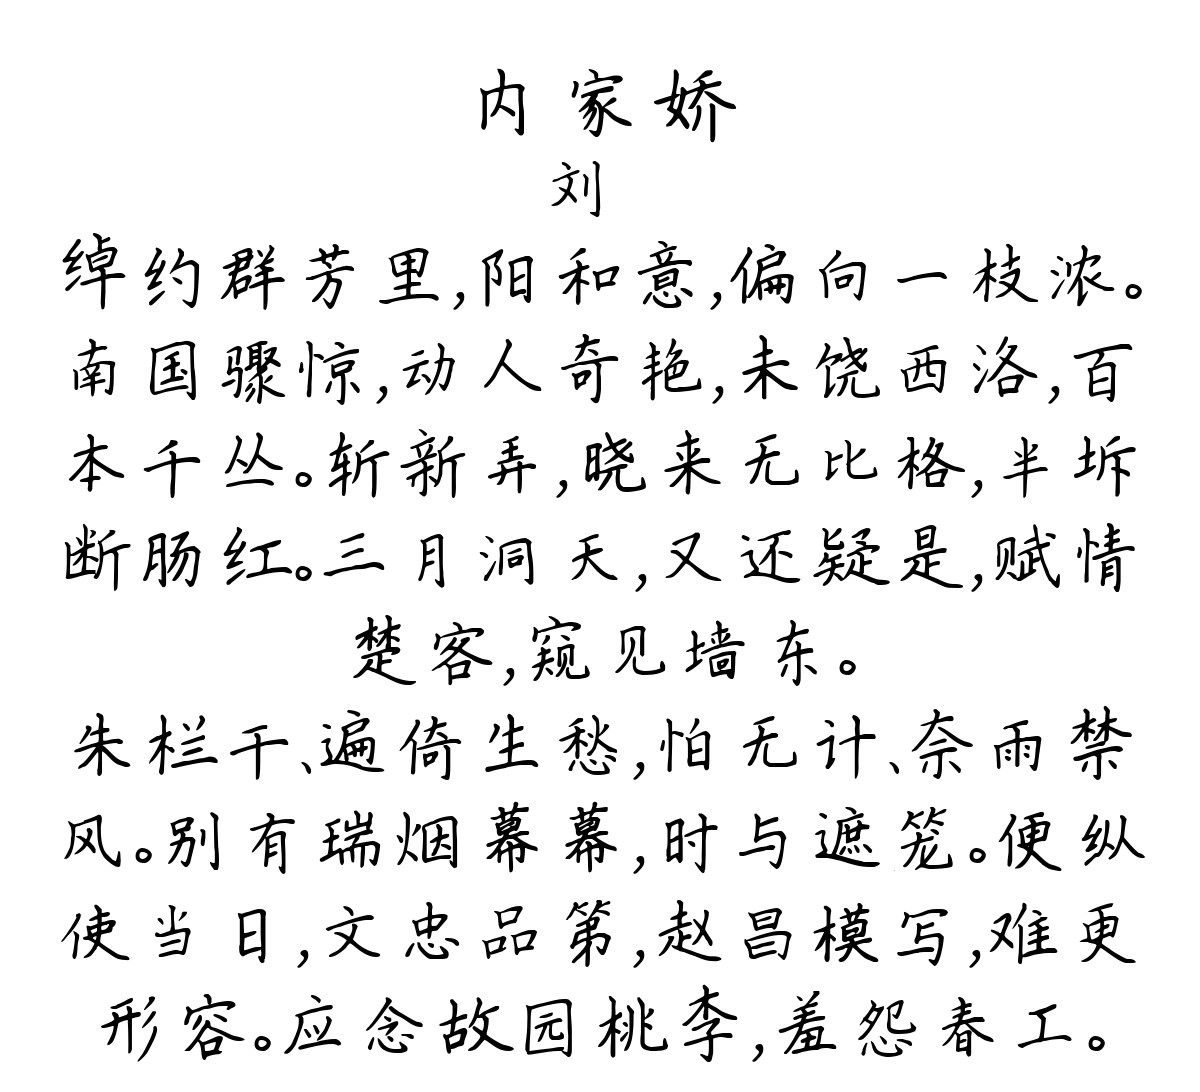 内家娇
刘
绰约群芳里,阳和意,偏向一枝浓。
南国骤惊,动人奇艳,未饶西洛,百
本千丛。斩新弄,晓来无比格,半坼
断肠红。三月洞天,又还疑是,赋情
楚客,窥见墙东。
朱栏干、遍倚生愁,怕无计、奈雨禁
风。别有瑞烟幕幕,时与遮笼。便纵
使当日,文忠品第,赵昌模写,难更
形容。应念故园桃李,羞怨春工。